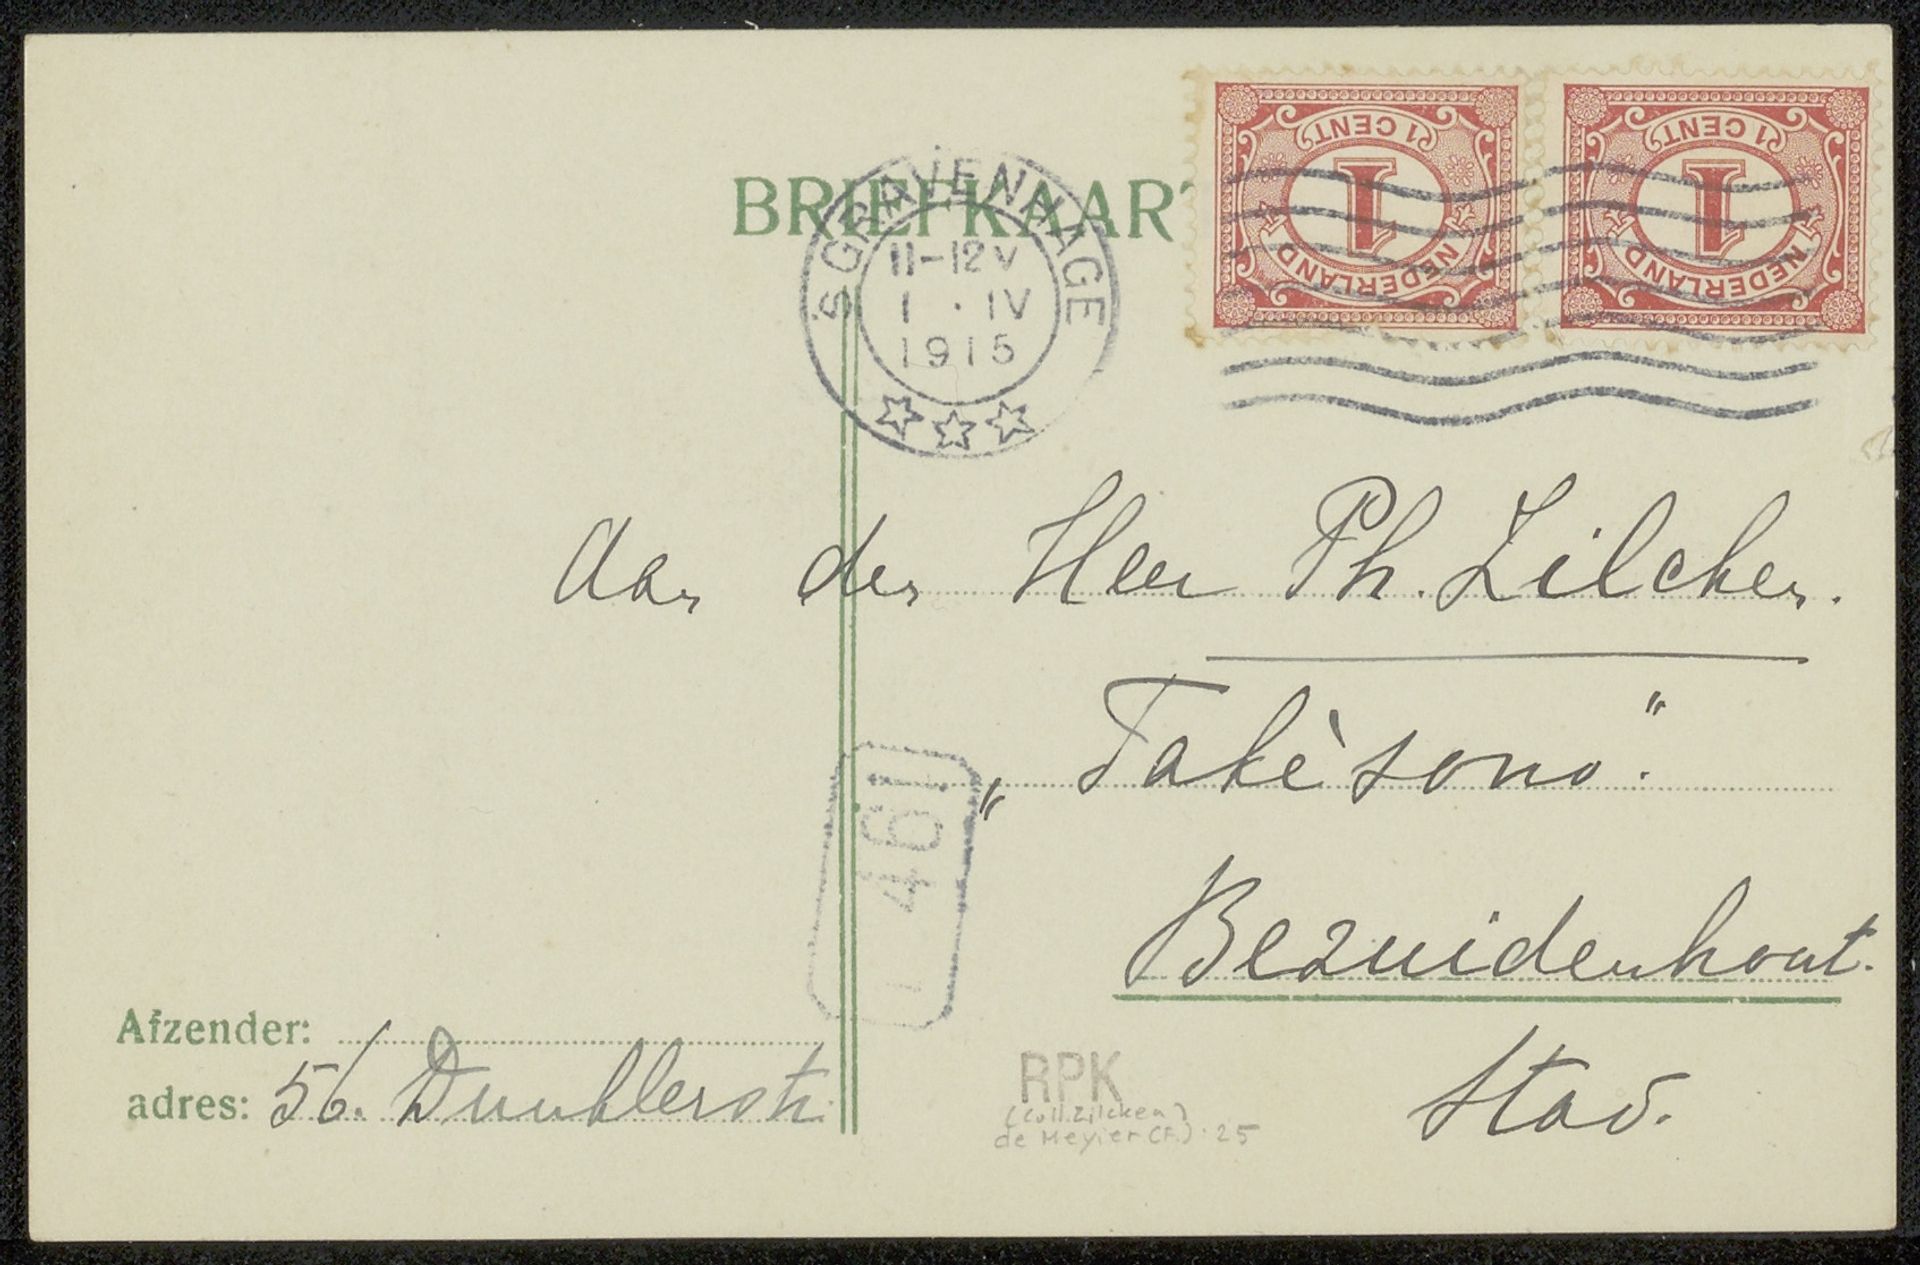 BRIEFKAART
'S GRAVENHAGE
11-12 V
1 . IV
1915
1 CENT
1
NEDERLAND
1 CENT
1
NEDERLAND
Aan den Heer Ph. Zilcken.
„Takèsono."
Bezuidenhout.
Stad.
461
Afzender:
adres: 56. Dunklerstr.
RPK
(Coll. Zilcken)
de Meyier (F.) · 25